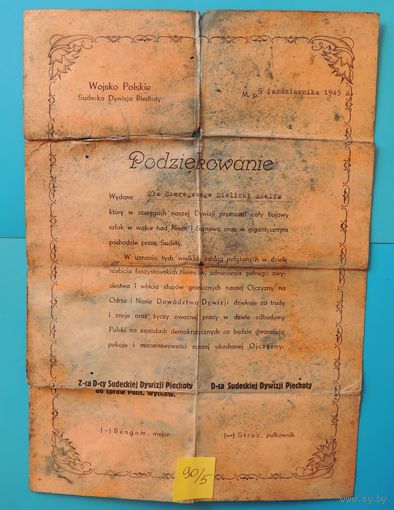 Wojsko Polskie
Sudecka Dywizja Piechoty
M. p. 9 Października 1945 r.
Podziękowanie
Wydane Dla Szeregowego Zielicki
który w szeregach naszej Dywizji przeszedł cały bojowy
szlak w walce nad Nisą i Szprewą oraz w gigantycznym
pochodzie przez Sudety.
W uznaniu tych wielkich zasług położonych w dziele
rozbicia faszystowskich Niemców, odniesienia pełnego zwy-
cięstwa i wbicia słupów granicznych naszej Ojczyzny na
Odrze i Nissie Dowództwo Dywizji dziękuje za trudy
i znoje oraz życzy owocnej pracy w dziele odbudowy
Polski na zasadach demokratycznych co będzie gwarancją
pokoju i mocarstwowości naszej ukochanej Ojczyzny.
Z-ca D-cy Sudeckiej Dywizji Piechoty
do spraw Polit. Wychow.
D-ca Sudeckiej Dywizji Piechoty
(—) Bengom, major
(—) Struc, pułkownik
90/5
www.ay.by